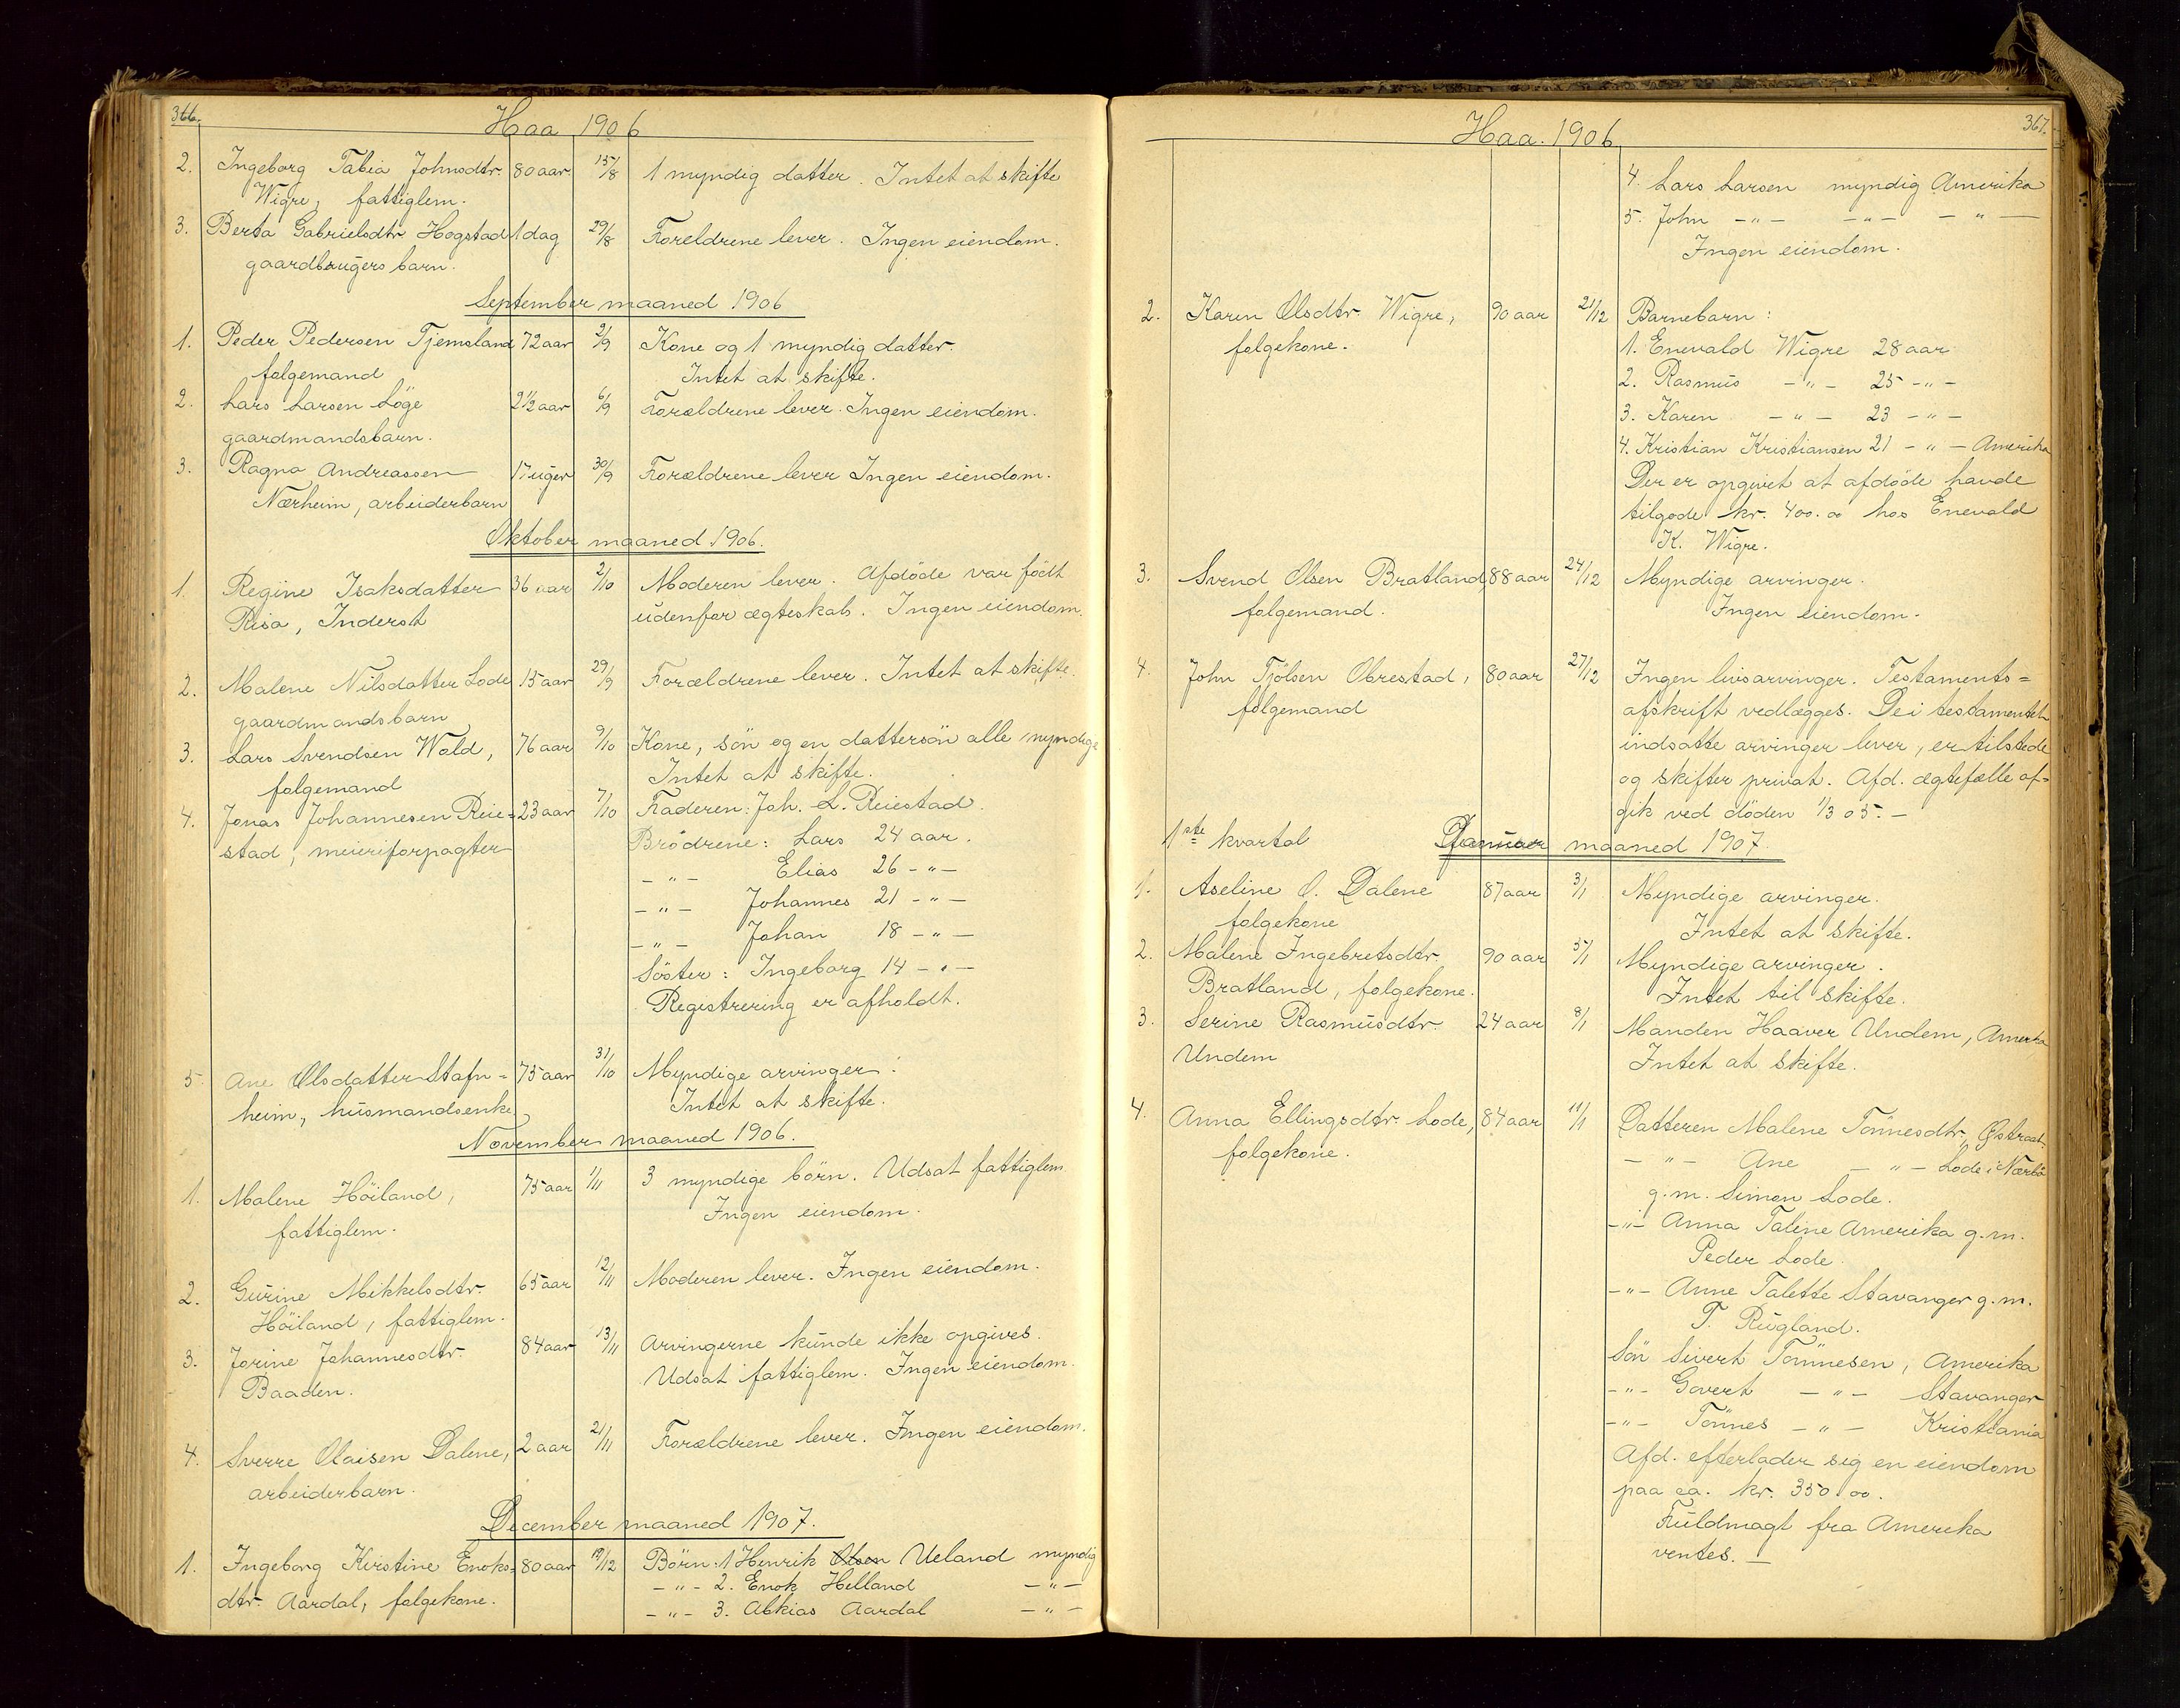 366.
Haa 1906
2. Ingeborg Tabia Johnsdtr. 80 aar 15/8 1 myndig datter. Intet at skifte
Wigre, fattiglem.
3. Berta Gabrielsdtr Hogstad 1 dag 29/8 Forældrene lever. Ingen eiendom.
gaardbrugers barn.
September maaned 1906
1. Peder Pedersen Tjemsland 72 aar 2/9 Kone og 1 myndig datter.
folgemand Intet at skifte.
2. Lars Larsen Löge 2 1/2 aar 6/9 Forældrene lever. Ingen eiendom.
gaardmandsbarn.
3. Ragna Andreassen 17 uger 30/9 Forældrene lever Ingen eiendom.
Nærheim, arbeiderbarn
Oktober maaned 1906.
1. Regine Isaksdatter 36 aar 2/10 Moderen lever. Afdöde var födt
Risa, Inderst udenfor ægteskab. Ingen eiendom.
2. Malene Nilsdatter Lode 15 aar 29/9 Forældrene lever. Intet at skifte.
gaardmandsbarn
3. Lars Svendsen Wold, 76 aar 9/10 Kone, sön og en dattersön alle myndige
folgemand Intet at skifte.
4. Jonas Johannesen Reie= 23 aar 7/10 Faderen: Joh. L. Reiestad.
stad, meieriforpagter Brödrene: Lars 24 aar.
-"- Elias 26 -"-
-"- Johannes 21 -"-
-"- Johan 18 -"-
Söster: Ingeborg 14 -"-
Registrering er afholdt.
5 Ane Olsdatter Stafn= 75 aar 31/10 Myndige arvinger.
heim, husmandsenke Intet at skifte.
November maaned 1906.
1. Malene Höiland, 75 aar 1/11 3 myndige börn. Udsat fattiglem
fattiglem. Ingen eiendom.
2. Gurine Mikkelsdtr. 65 aar 12/11 Moderen lever. Ingen eiendom.
Höiland, fattiglem.
3. Jorine Johannesdtr. 84 aar 13/11 Arvingerne kunde ikke opgives.
Baaden. Udsat fattiglem. Ingen eiendom.
4. Sverre Olaisen Dalene, 2 aar 21/11 Forældrene lever. Ingen eiendom.
arbeiderbarn.
December maaned 1907.
1. Ingeborg Kirstine Enoks= 80 aar 19/12 Börn: 1 Henrik Olsen Ueland myndig
dtr. Aardal, folgekone. -"- 2. Enok Helland -"-
-"- 3. Abkias Aardal -"-
367.
Haa. 1906
4. Lars Larsen myndig Amerika
5. John -"- -"- -"-
Ingen eiendom.
2. Karen Olsdtr. Wigre, 90 aar 21/12 Barnebarn:
folgekone. 1. Enevald Wigre 28 aar
2. Rasmus -"- 25 -"-
3. Karen -"- 23 -"-
4. Kristian Kristiansen 21 -"- Amerika
Der er opgivet at afdöde havde
tilgode kr. 400.00 hos Enevald
K. Wigre.
3. Svend Olsen Bratland, 88 aar 24/12 Myndige arvinger.
folgemand. Ingen eiendom.
4. John Tjölsen Obrestad, 80 aar 27/12 Ingen livsarvinger. Testaments=
folgemand afskrift vedlægges. De i testamentet
indsatte arvinger lever, er tilstede
og skifter privat. Afd. ægtefælle af=
gik ved döden 1/3 05.-
1ste kvartal Januar maaned 1907.
1. Aseline O. Dalene 87 aar 3/1 Myndige arvinger.
folgekone Intet at skifte.
2. Malene Ingebretsdtr. 90 aar 5/1 Myndige arvinger.
Bratland, folgekone. Intet til skifte.
3. Serine Rasmusdtr. 24 aar 8/1 Manden Haaver Undem, Amerka
Undem Intet at skifte.
4. Anna Ellingsdtr. Lode, 84 aar 11/1 Datteren Malene Tönnesdtr, Østraat
folgekone. -"- Ane -"- Lode i Nærbö
g.m. Simon Lode.
-"- Anna Taline Amerika g.m.
Peder Lode.
-"- Anne Talette Stavanger g.m.
T. Rugland.
Sön Sivert Tönnesen, Amerika
-"- Govert -"- Stavanger
-"- Tönnes -"- Kristiania
Afd. efterlader sig en eiendom
paa ca. kr. 350.00.
Fuldmagt fra Amerika
ventes. -